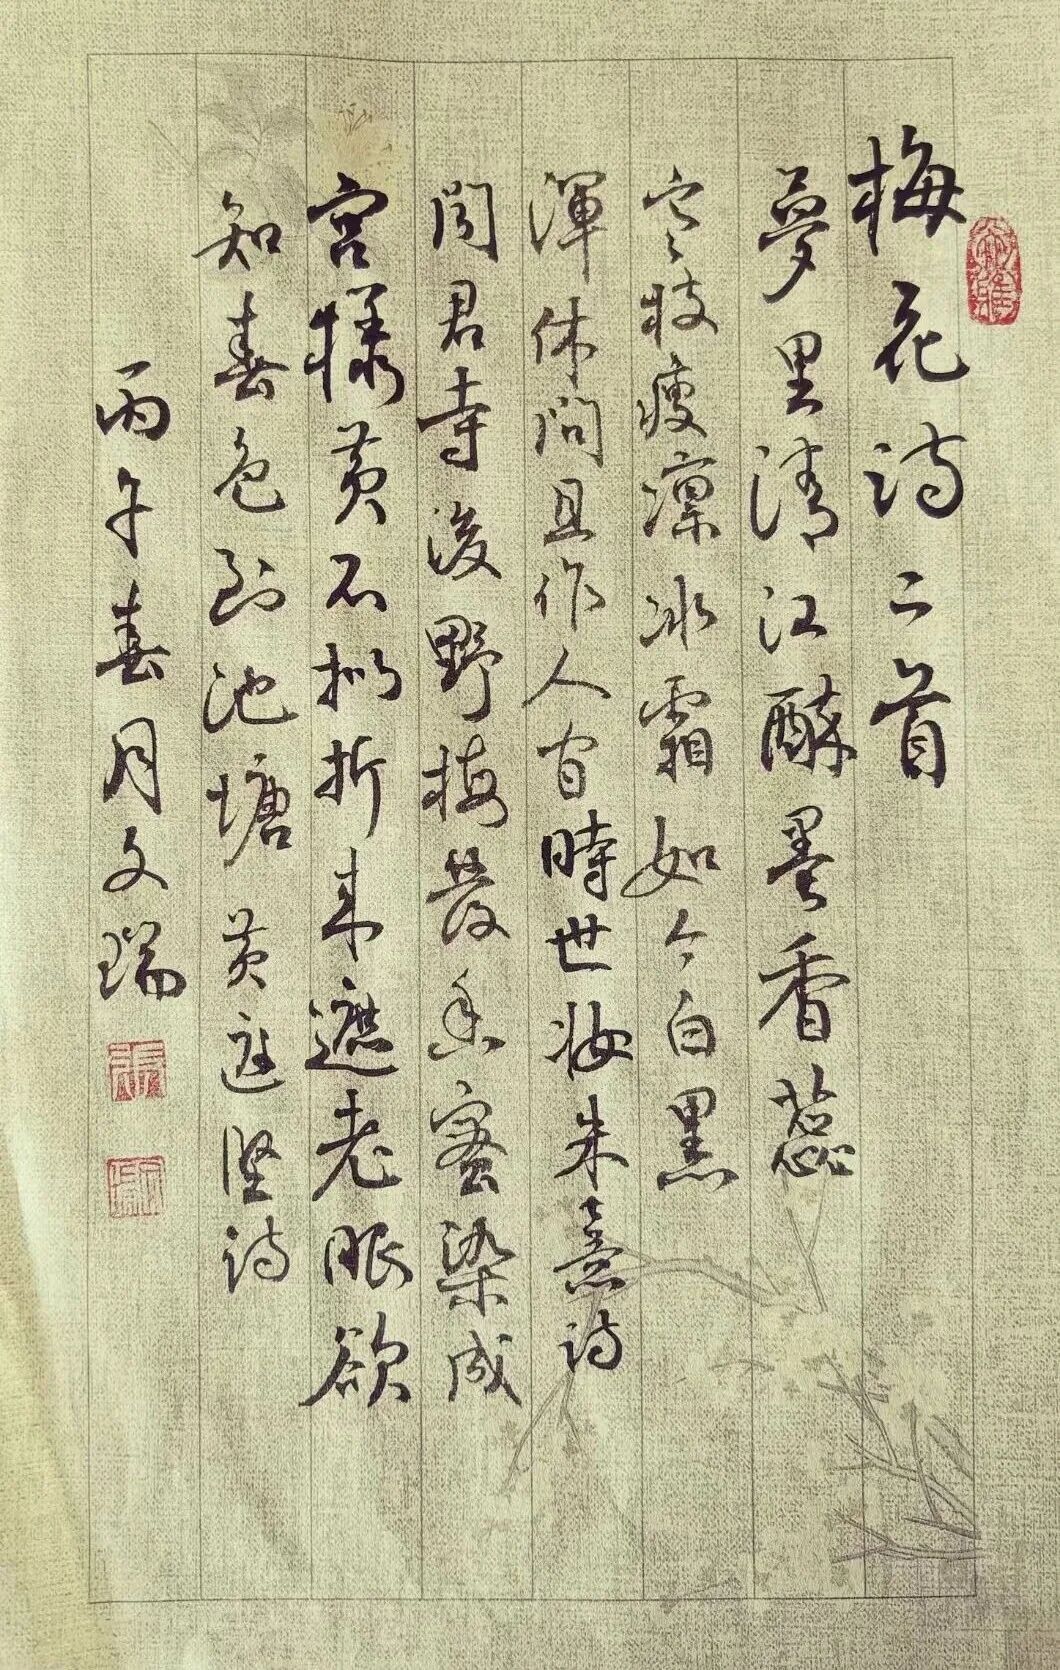 梅花诗二首
夢里清江醉墨香蕊
寒枝瘦凛冰霜如今白黑
渾休問且作人间時世妝朱熹诗
闻君寺後野梅发香蜜染成
宫樣黄不拟折来遮老眼欲
知春色到池塘黄庭坚诗
丙午春月文瑞